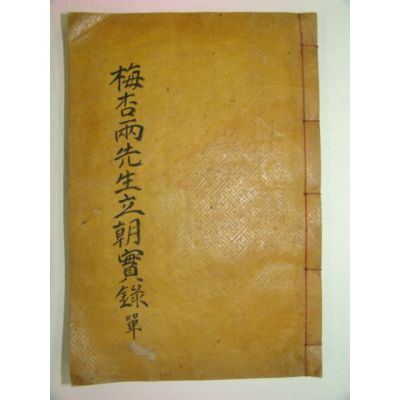 梅杏兩先生立朝實錄單